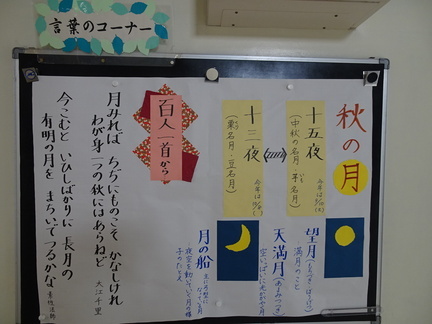 言葉のコーナー
秋の月
十五夜
(中秋の名月・芋名月)
十三夜
(栗名月・豆名月)
望月
満月のこと
天満月(あまみつき)
月の船
夜空を動いていく月の様
子のたとえ
百人一首から
月みれば ちぢにものこそ かなしけれ
わが身一つの秋にはあらねど
大江千里
今こむと いひしばかりに 長月の
有明の月を まちいでつるかな
素性法師